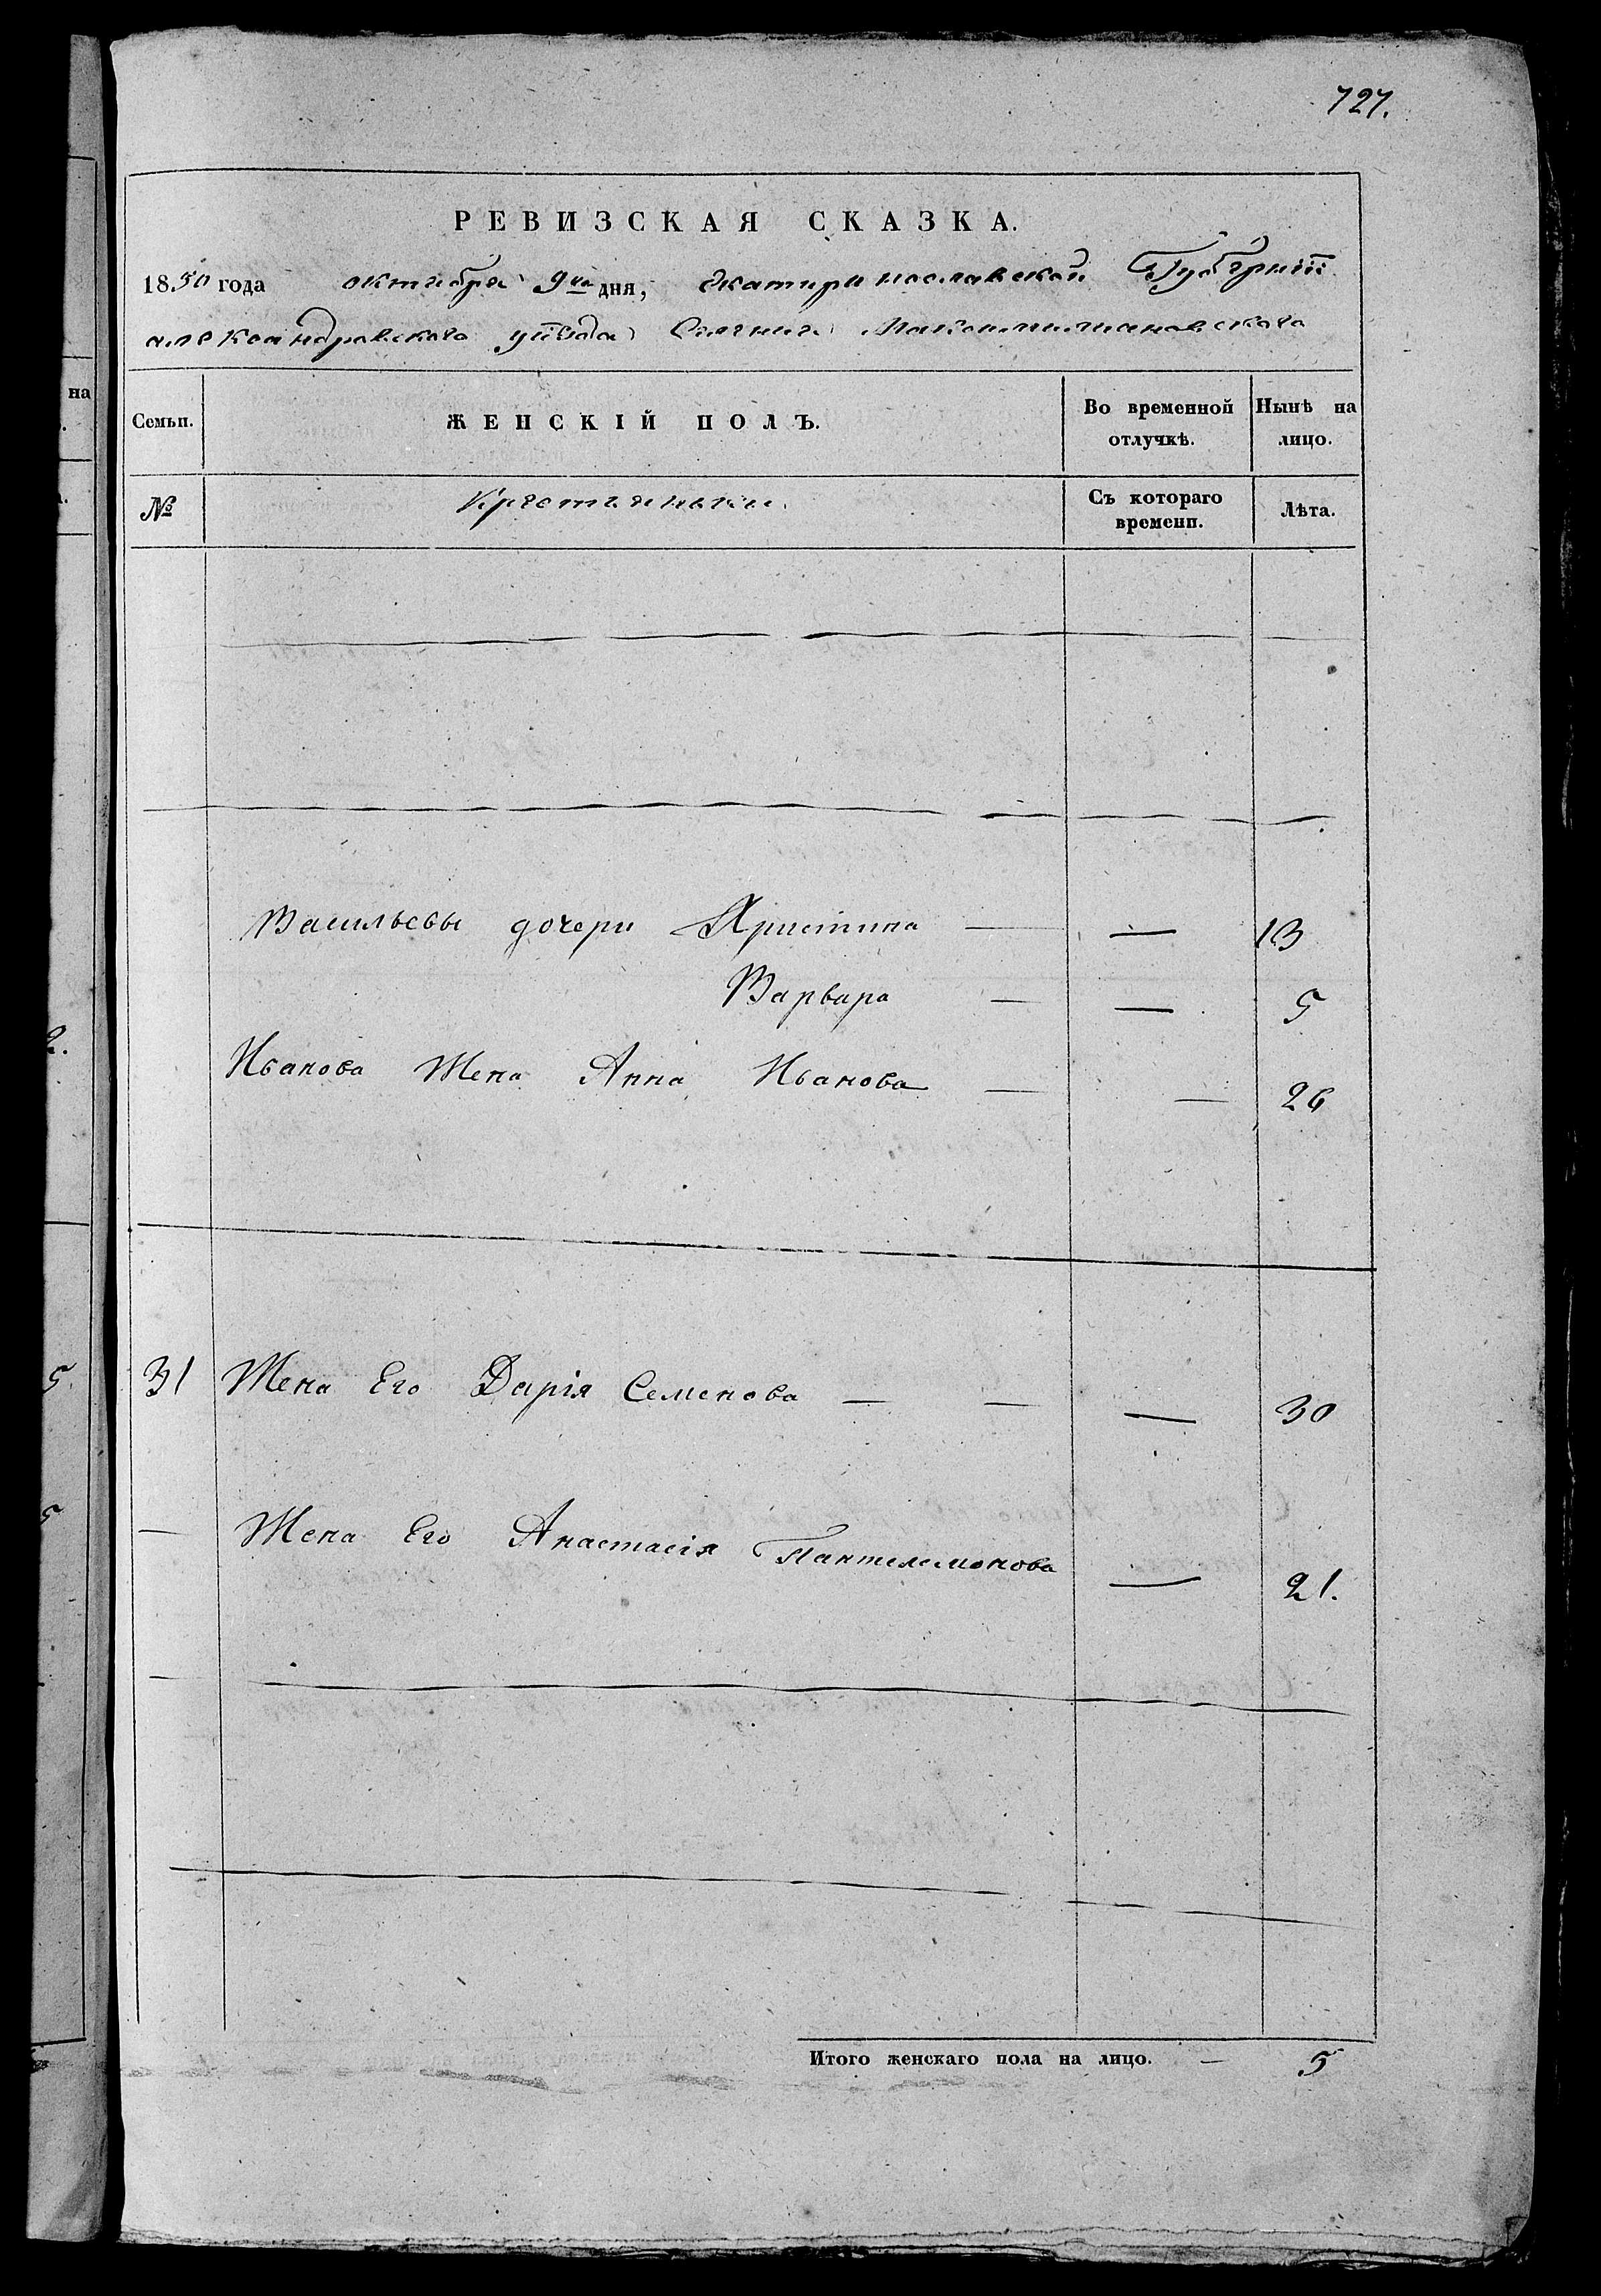 727.
РЕВИЗСКАЯ СКАЗКА.
1850 года октября 9го дня, Екатеринославской Губернии
александровского уѣзда Селения Максимилиановского
Семьи. ЖЕНСКІЙ ПОЛЪ. Во временной отлучкѣ. Нынѣ на лицо.
№ Крестьяньки. Съ котораго времени. Лѣта.
Васильевы дочери Христина — — 13
Варвара — — 5
Иванова Жена Анна Иванова — — 26
31 Жена Его Дарія Семенова — — — 30
— Жена Его Анастасія Пантелемонова — 21.
Итого женскаго пола на лицо. — 5
на
2.
5
5